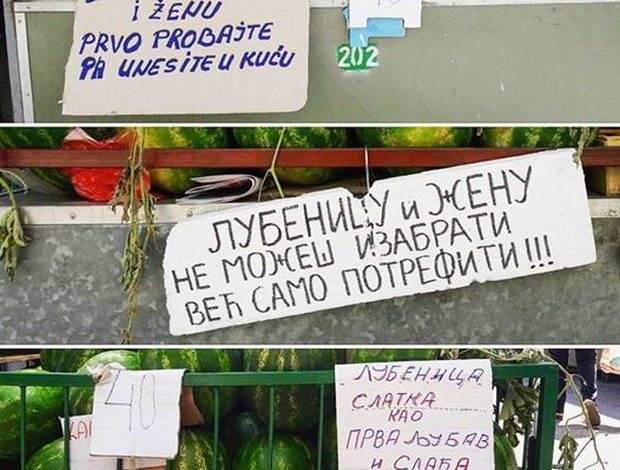 i ŽENU
PRVO PROBAJTE
PA UNESITE U KUĆU
202
ЛУБЕНИЦУ и ЖЕНУ
НЕ МОЖЕШ ИЗАБРАТИ
ВЕЋ САМО ПОТРЕФИТИ!!!
40
ЛУБЕНИЦА
СЛАТКА
КАО
ПРВА ЉУБАВ
и СЛАБА